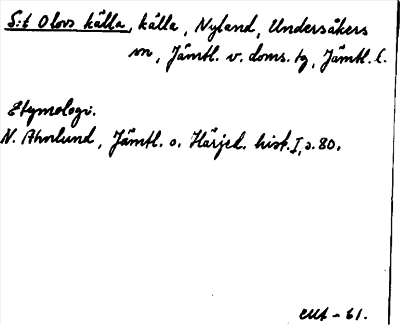 S:t Olovs källa, källa, Nyland, Undersåkers
sn, Jämtl. v. doms. tg, Jämtl. l.
Etymologi.
N. Ahnlund, Jämtl. o. Härjed. hist. I, s. 80.
-61.